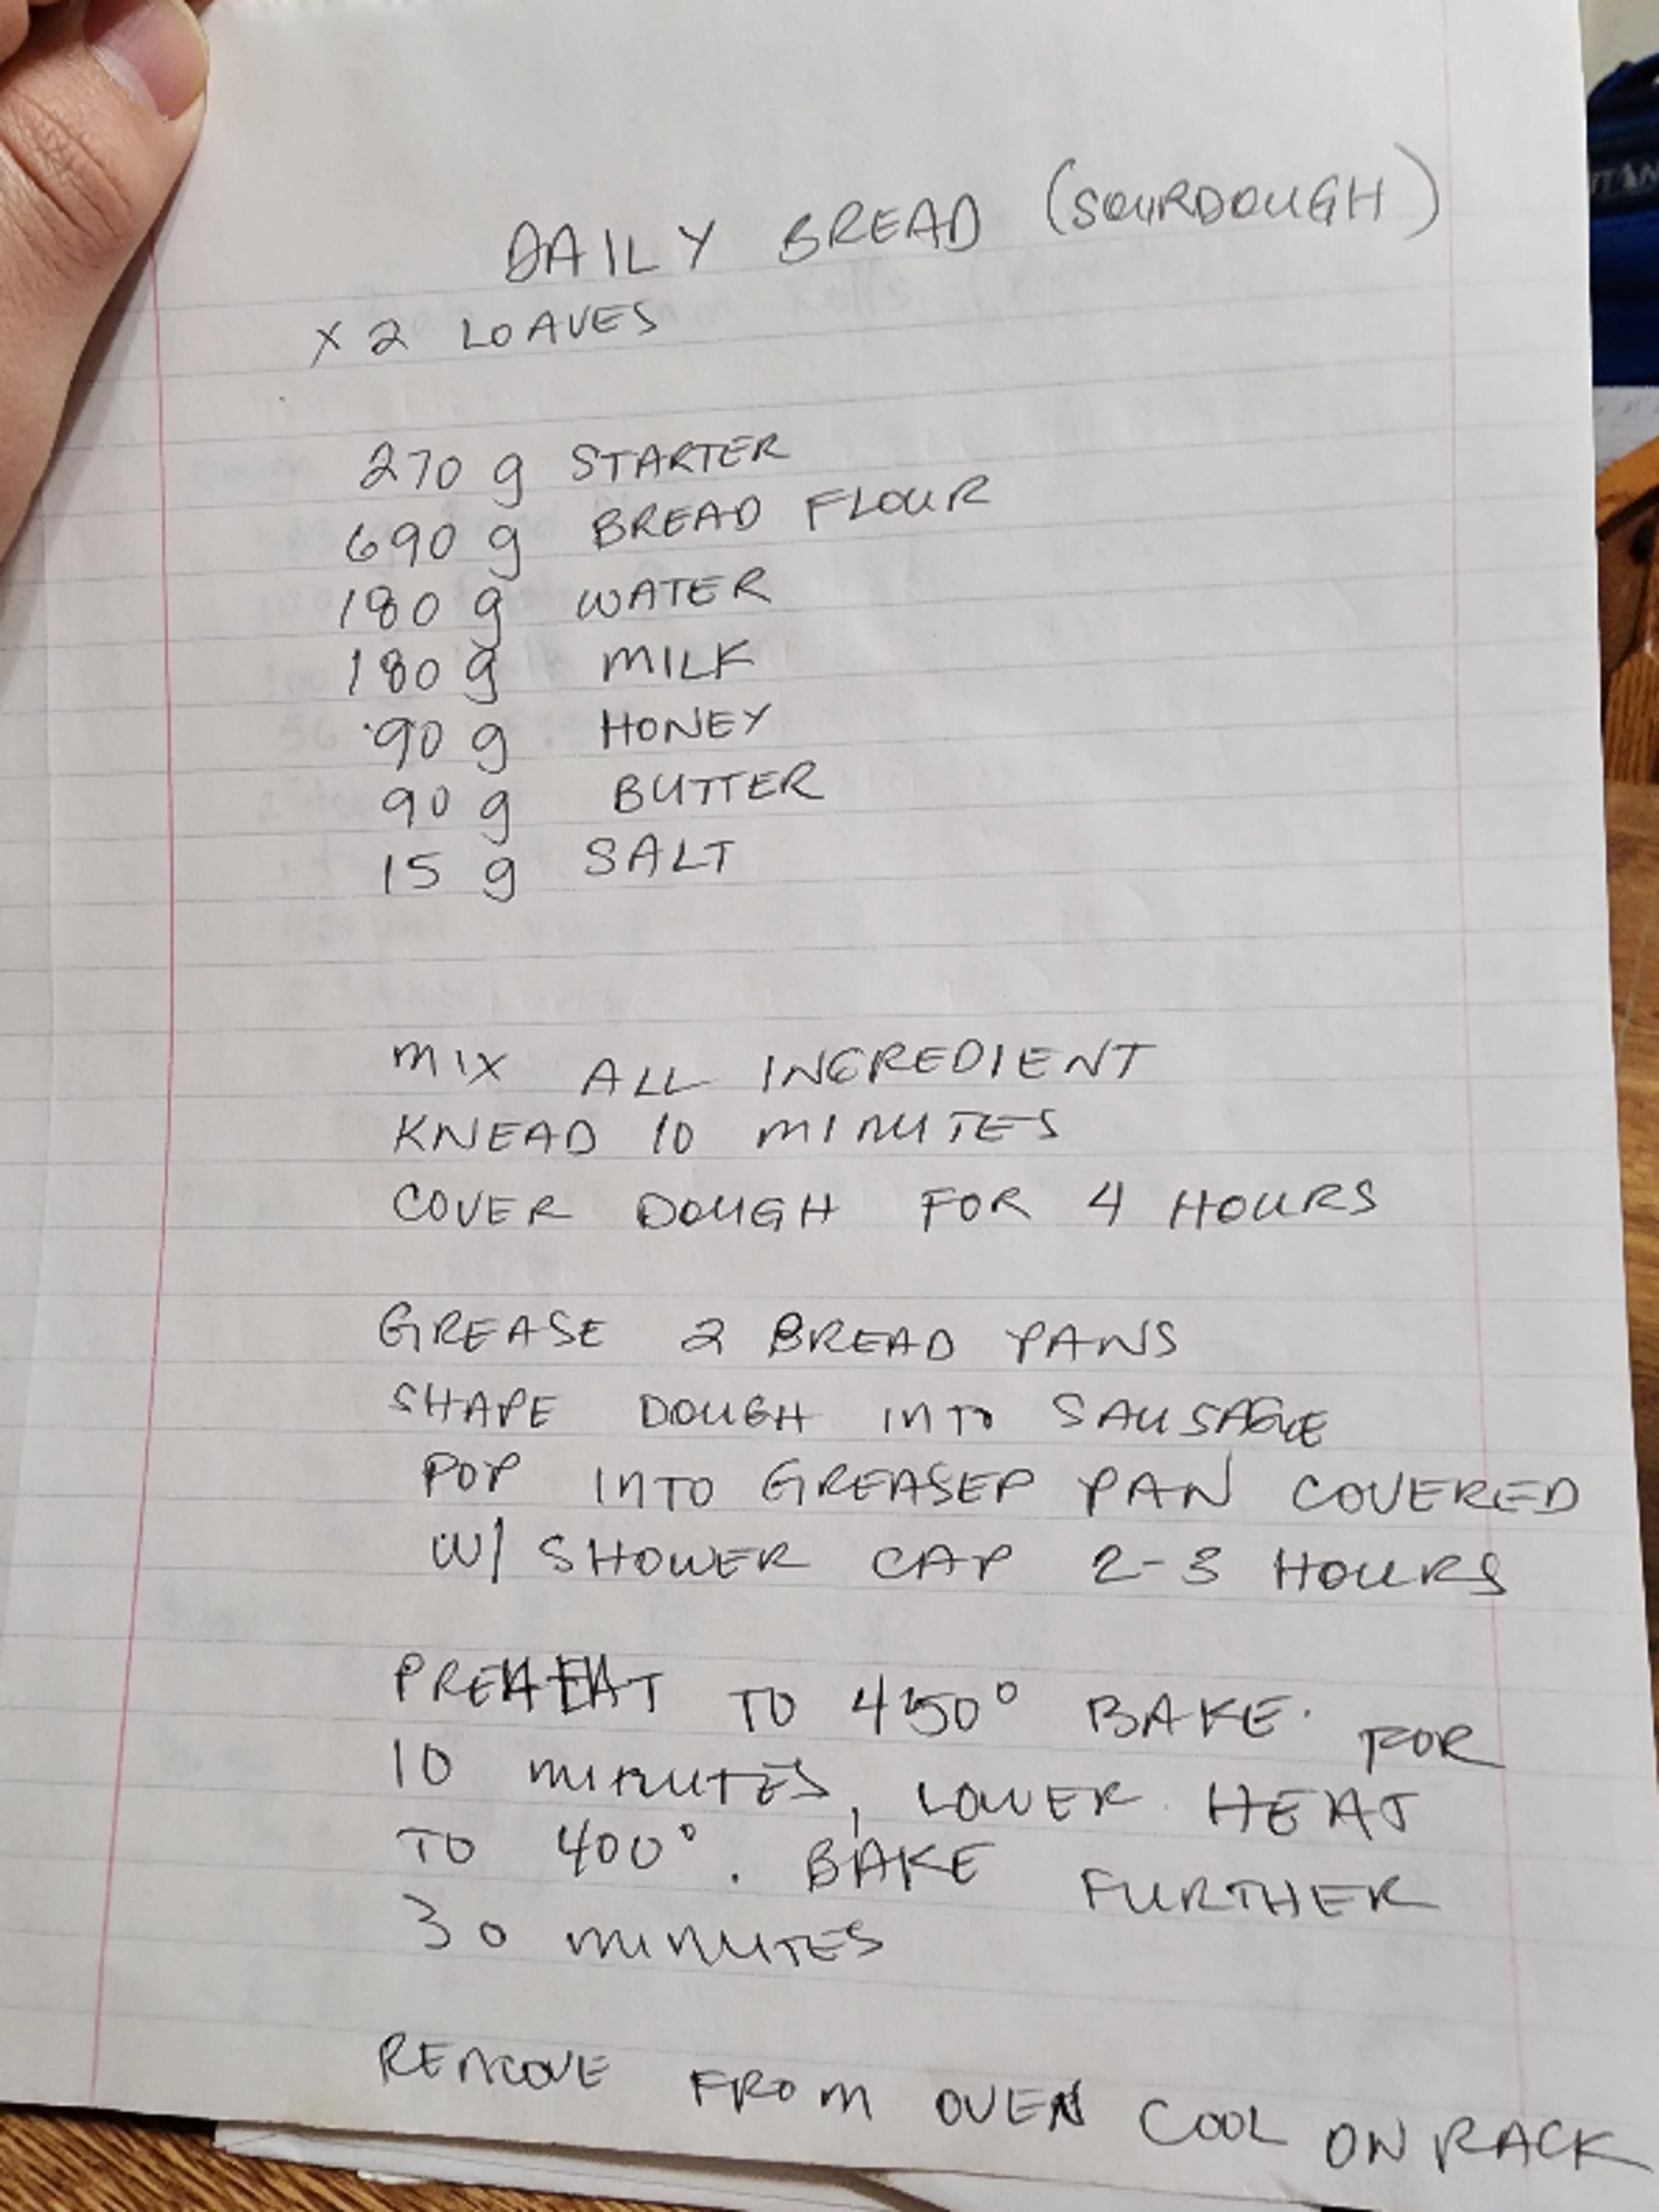 DAILY BREAD (SOURDOUGH)
X 2 LOAVES
270 g STARTER
690 g BREAD FLOUR
180 g WATER
180 g MILK
90 g HONEY
90 g BUTTER
15 g SALT
MIX ALL INGREDIENT
KNEAD 10 MINUTES
COVER DOUGH FOR 4 HOURS
GREASE 2 BREAD PANS
SHAPE DOUGH INTO SAUSAGE
POP INTO GREASED PAN COVERED
W/ SHOWER CAP 2-3 HOURS
PREHEAT TO 450° BAKE FOR
10 MINUTES, LOWER HEAT
TO 400°. BAKE FURTHER
30 MINUTES
REMOVE FROM OVEN COOL ON RACK